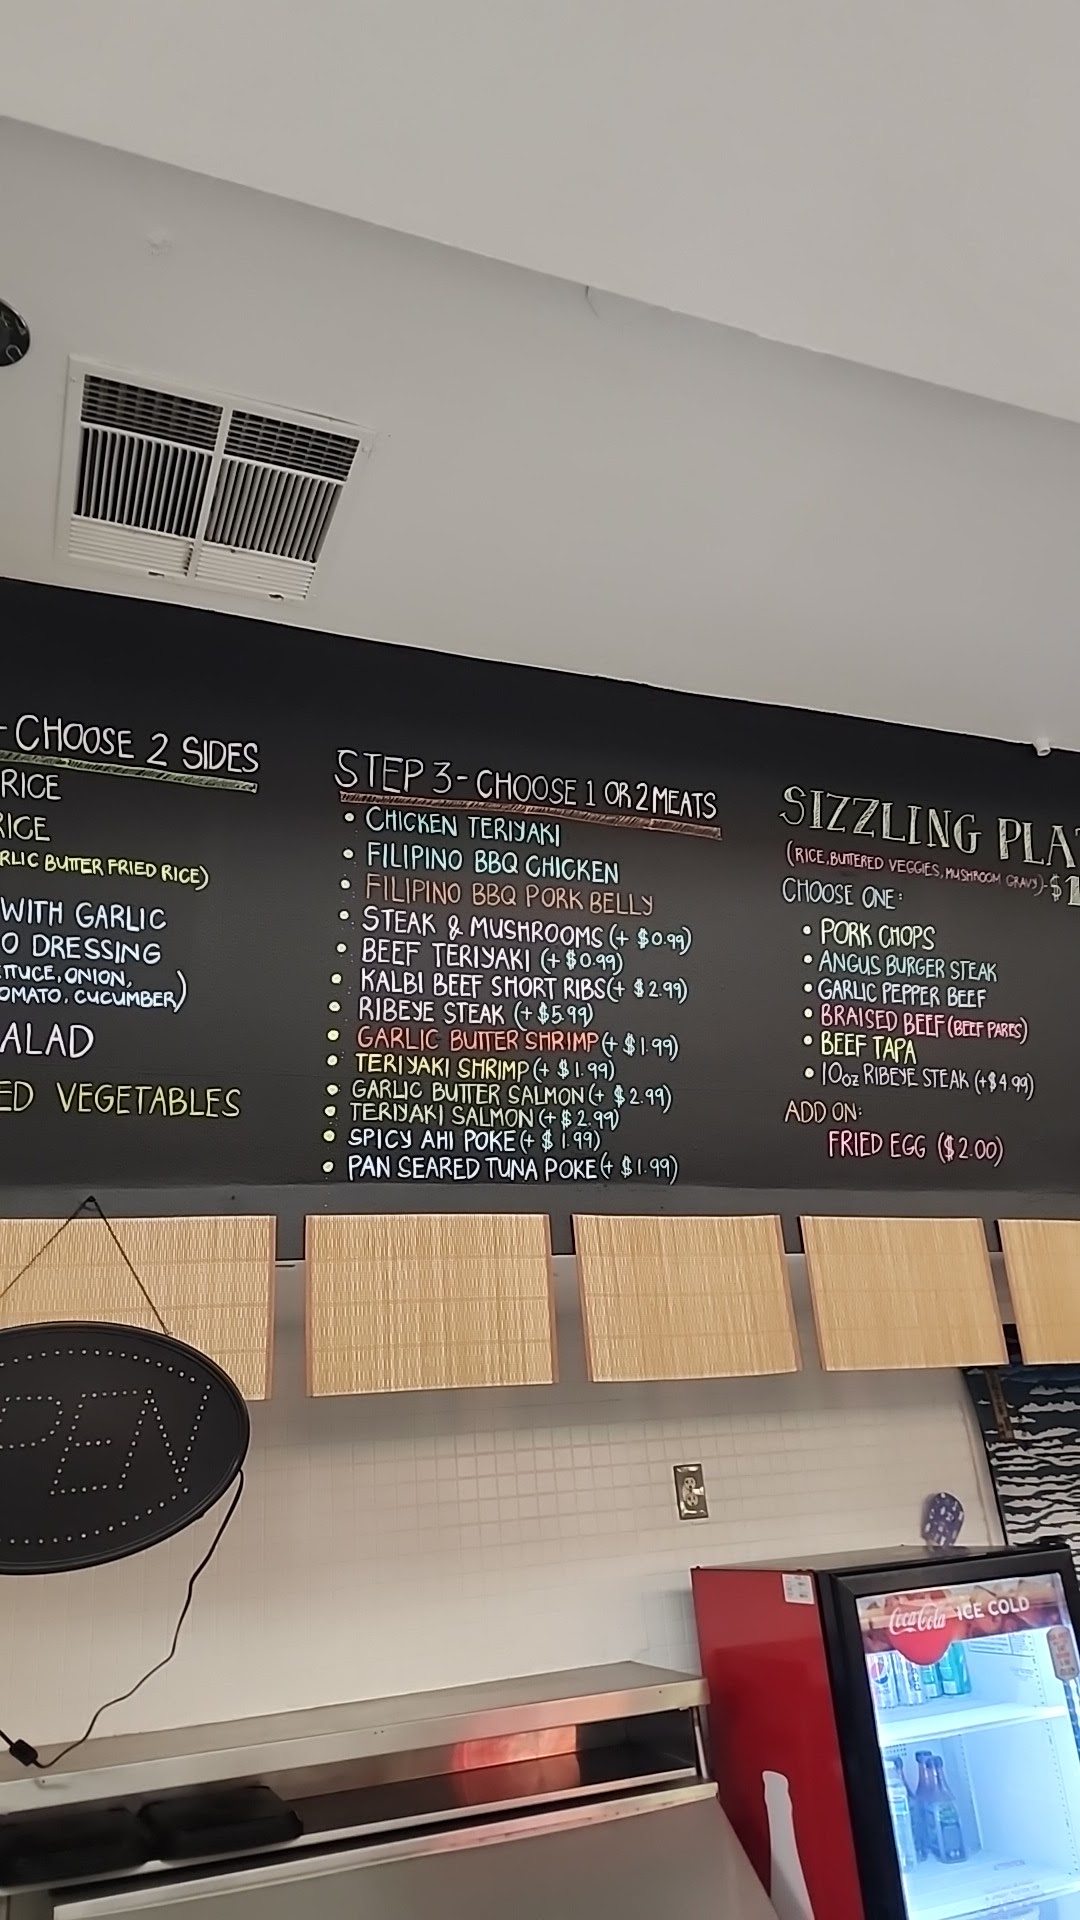 - CHOOSE 2 SIDES
RICE
RICE
BUTTER FRIED RICE)
WITH GARLIC
DRESSING
ONION,
CUCUMBER)
VEGETABLES
STEP 3 - CHOOSE 1 OR 2 MEATS
• CHICKEN TERIYAKI
• FILIPINO BBQ CHICKEN
• FILIPINO BBQ PORK BELLY
• STEAK & MUSHROOMS (+ $0.99)
• BEEF TERIYAKI (+ $0.99)
• KALBI BEEF SHORT RIBS (+ $2.99)
• RIBEYE STEAK (+ $5.99)
• GARLIC BUTTER SHRIMP (+ $1.99)
• TERIYAKI SHRIMP (+ $1.99)
• GARLIC BUTTER SALMON (+ $2.99)
• TERIYAKI SALMON (+ $2.99)
• SPICY AHI POKE (+ $1.99)
• PAN SEARED TUNA POKE (+ $1.99)
SIZZLING PLA
(RICE, BUTTERED VEGGIES, MUSHROOM GRAVY) - $1
CHOOSE ONE:
• PORK CHOPS
• ANGUS BURGER STEAK
• GARLIC PEPPER BEEF
• BRAISED BEEF (BEEF PARES)
• BEEF TAPA
• 10oz RIBEYE STEAK (+$4.99)
ADD ON:
FRIED EGG ($2.00)
PEN
Coca-Cola ICE COLD